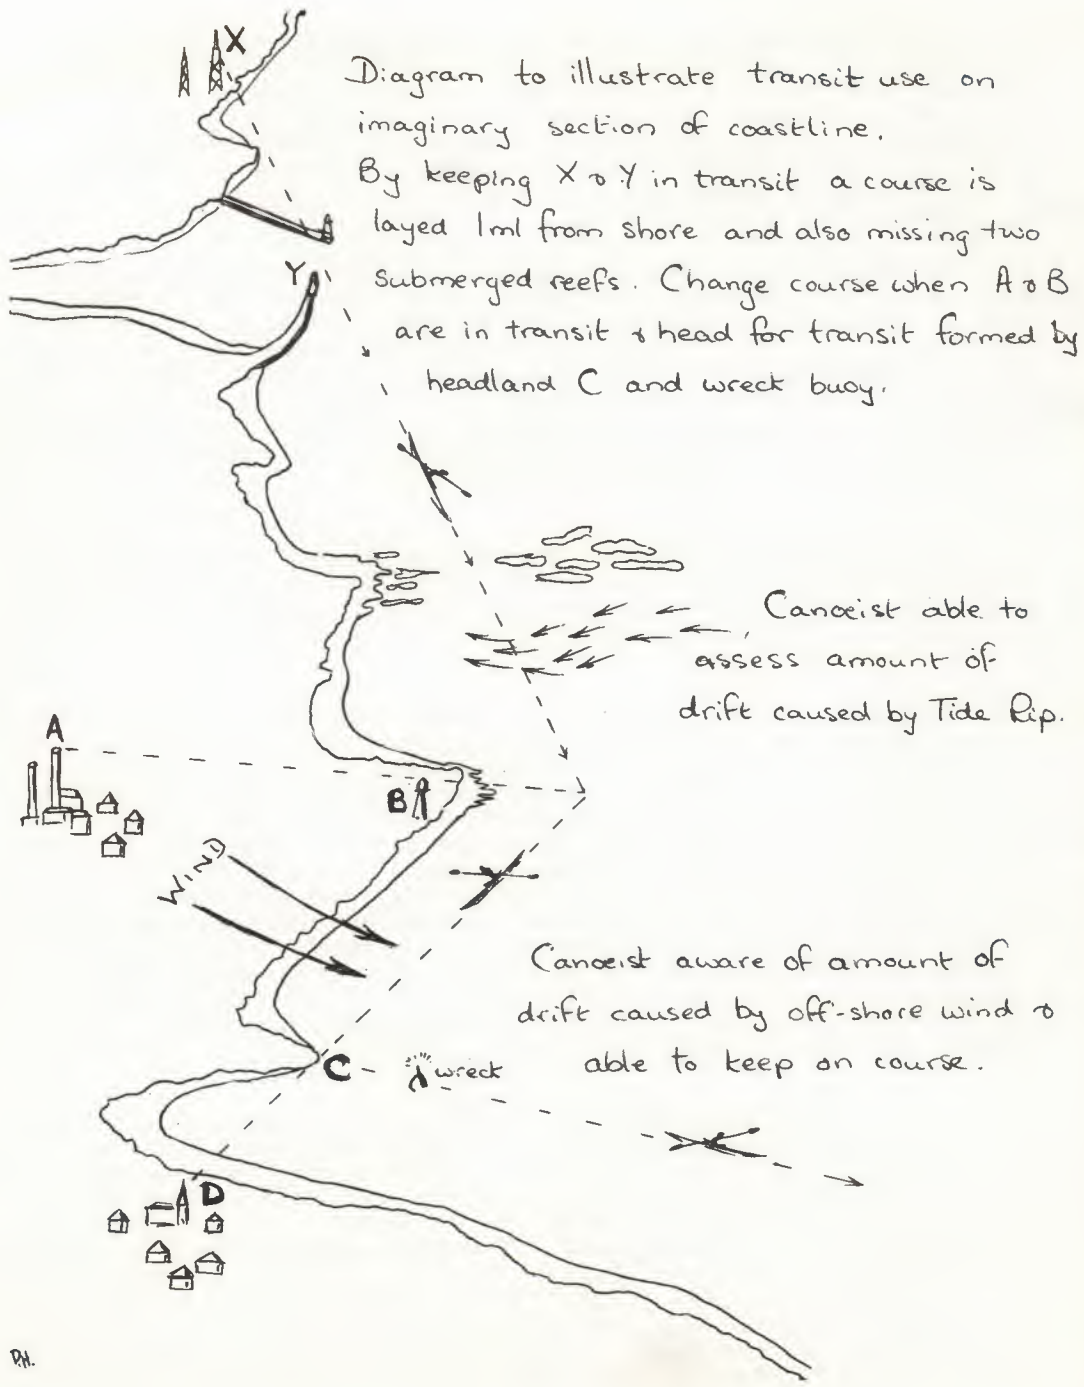 X
Diagram to illustrate transit use on
imaginary section of coastline.
By keeping X & Y in transit a course is
layed 1ml from shore and also missing two
Y
submerged reefs. Change course when A & B
are in transit & head for transit formed by
headland C and wreck buoy.
Canoeist able to
assess amount of
drift caused by Tide Rip.
A
B
WIND
Canoeist aware of amount of
drift caused by off-shore wind &
able to keep on course.
C
wreck
D
P.H.